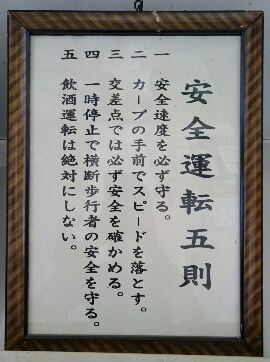 安全運転五則
一 安全速度を必ず守る。
二 カーブの手前でスピードを落とす。
三 交差点では必ず安全を確かめる。
四 一時停止で横断歩行者の安全を守る。
五 飲酒運転は絶対にしない。